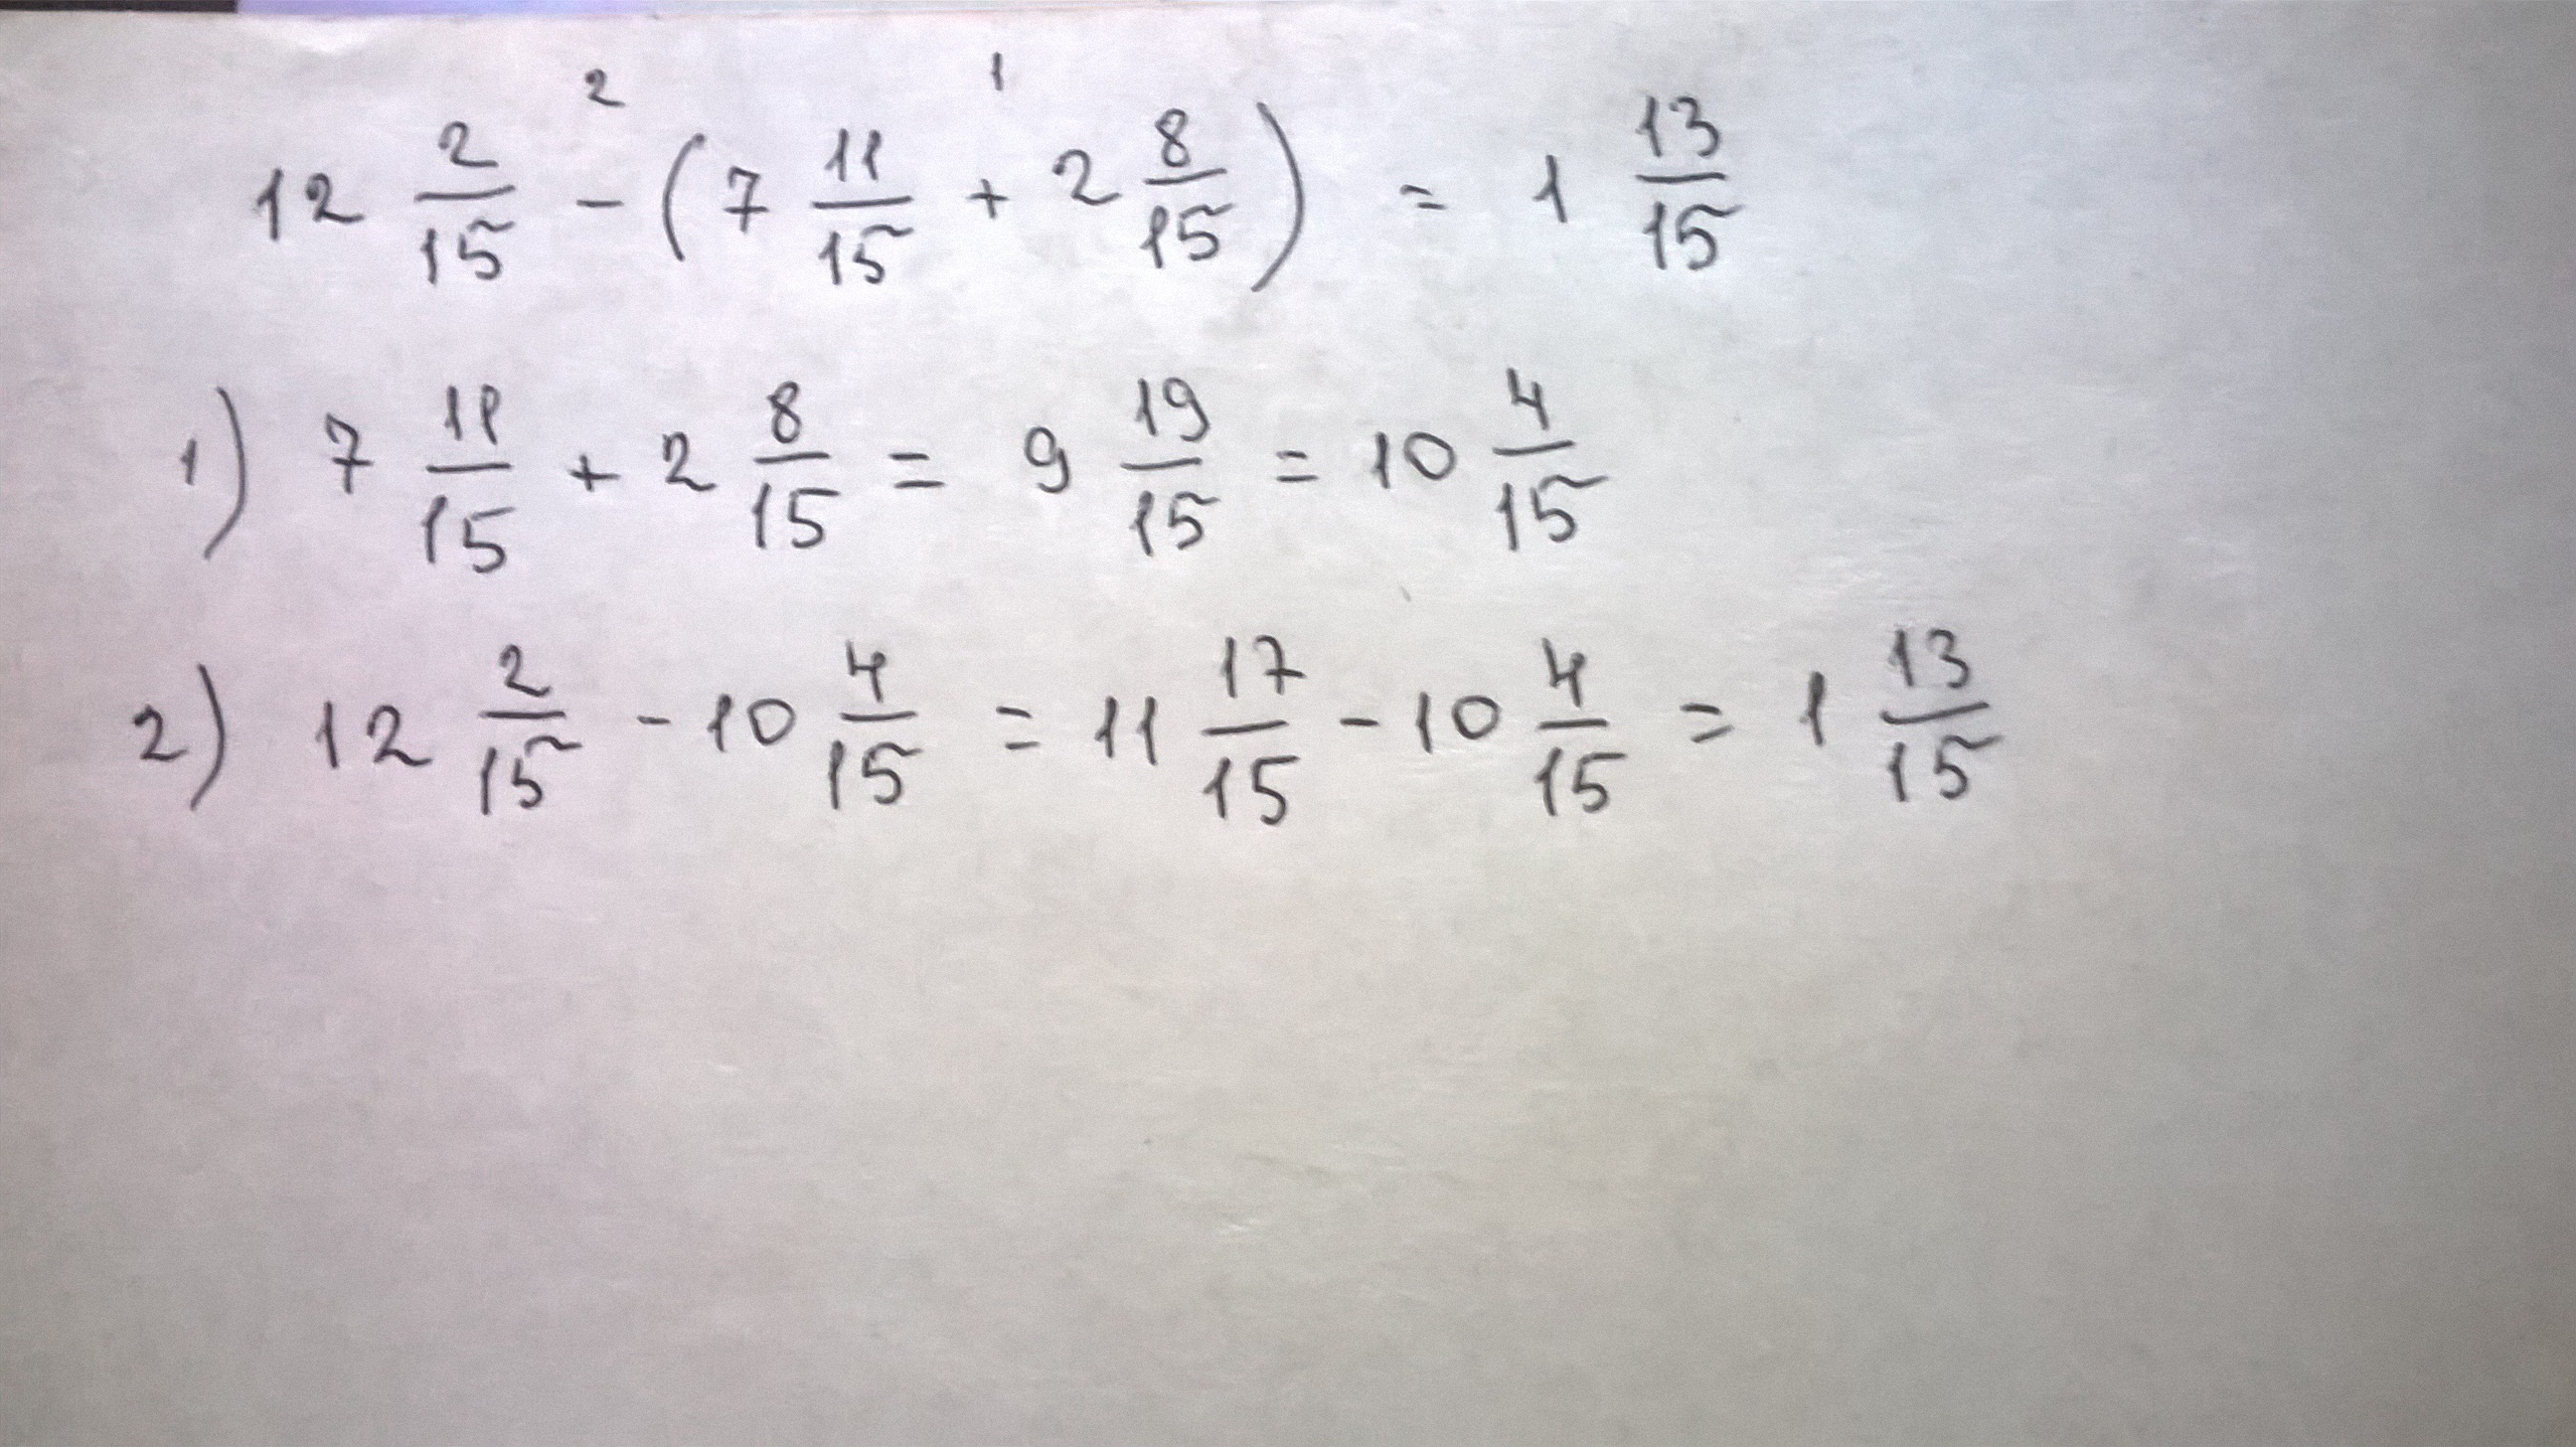 12 2/15 -² (7 11/15 +¹ 2 8/15) = 1 13/15
1) 7 11/15 + 2 8/15 = 9 19/15 = 10 4/15
2) 12 2/15 - 10 4/15 = 11 17/15 - 10 4/15 = 1 13/15